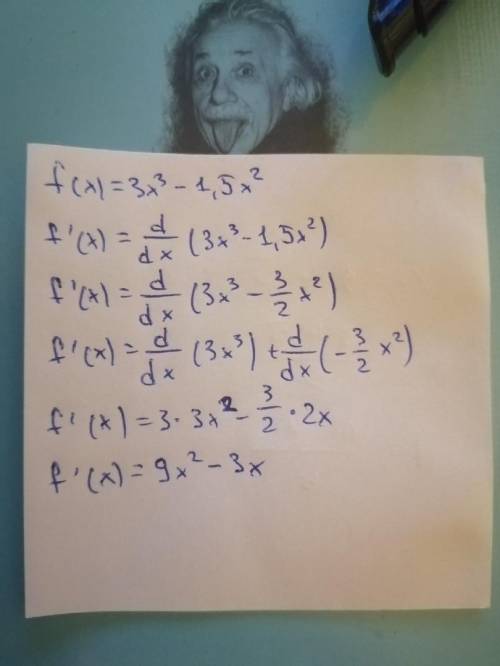 f(x) = 3x³ - 1,5x²
f'(x) = d/dx (3x³ - 1,5x²)
f'(x) = d/dx (3x³ - 3/2 x²)
f'(x) = d/dx (3x³) + d/dx (- 3/2 x²)
f'(x) = 3 · 3x² - 3/2 · 2x
f'(x) = 9x² - 3x